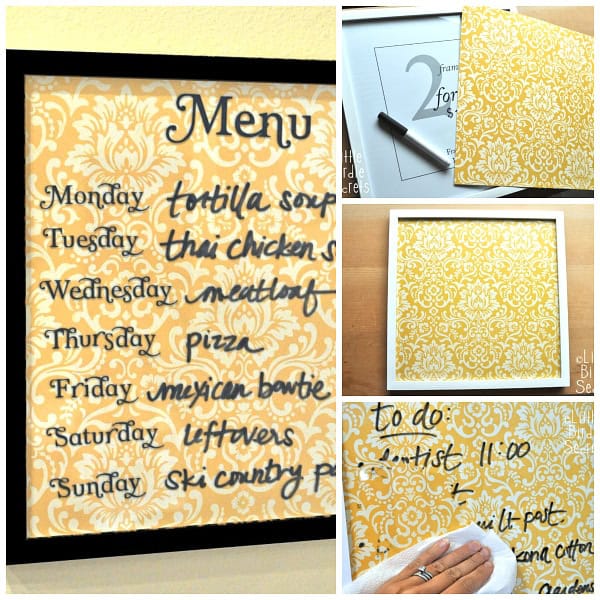 Menu
Monday tortilla soup
Tuesday thai chicken s
Wednesday meatloaf
Thursday pizza
Friday mexican bowtie
Saturday leftovers
Sunday ski country p
2
fram
for
to do:
dentist 11:00
post
kona cotton